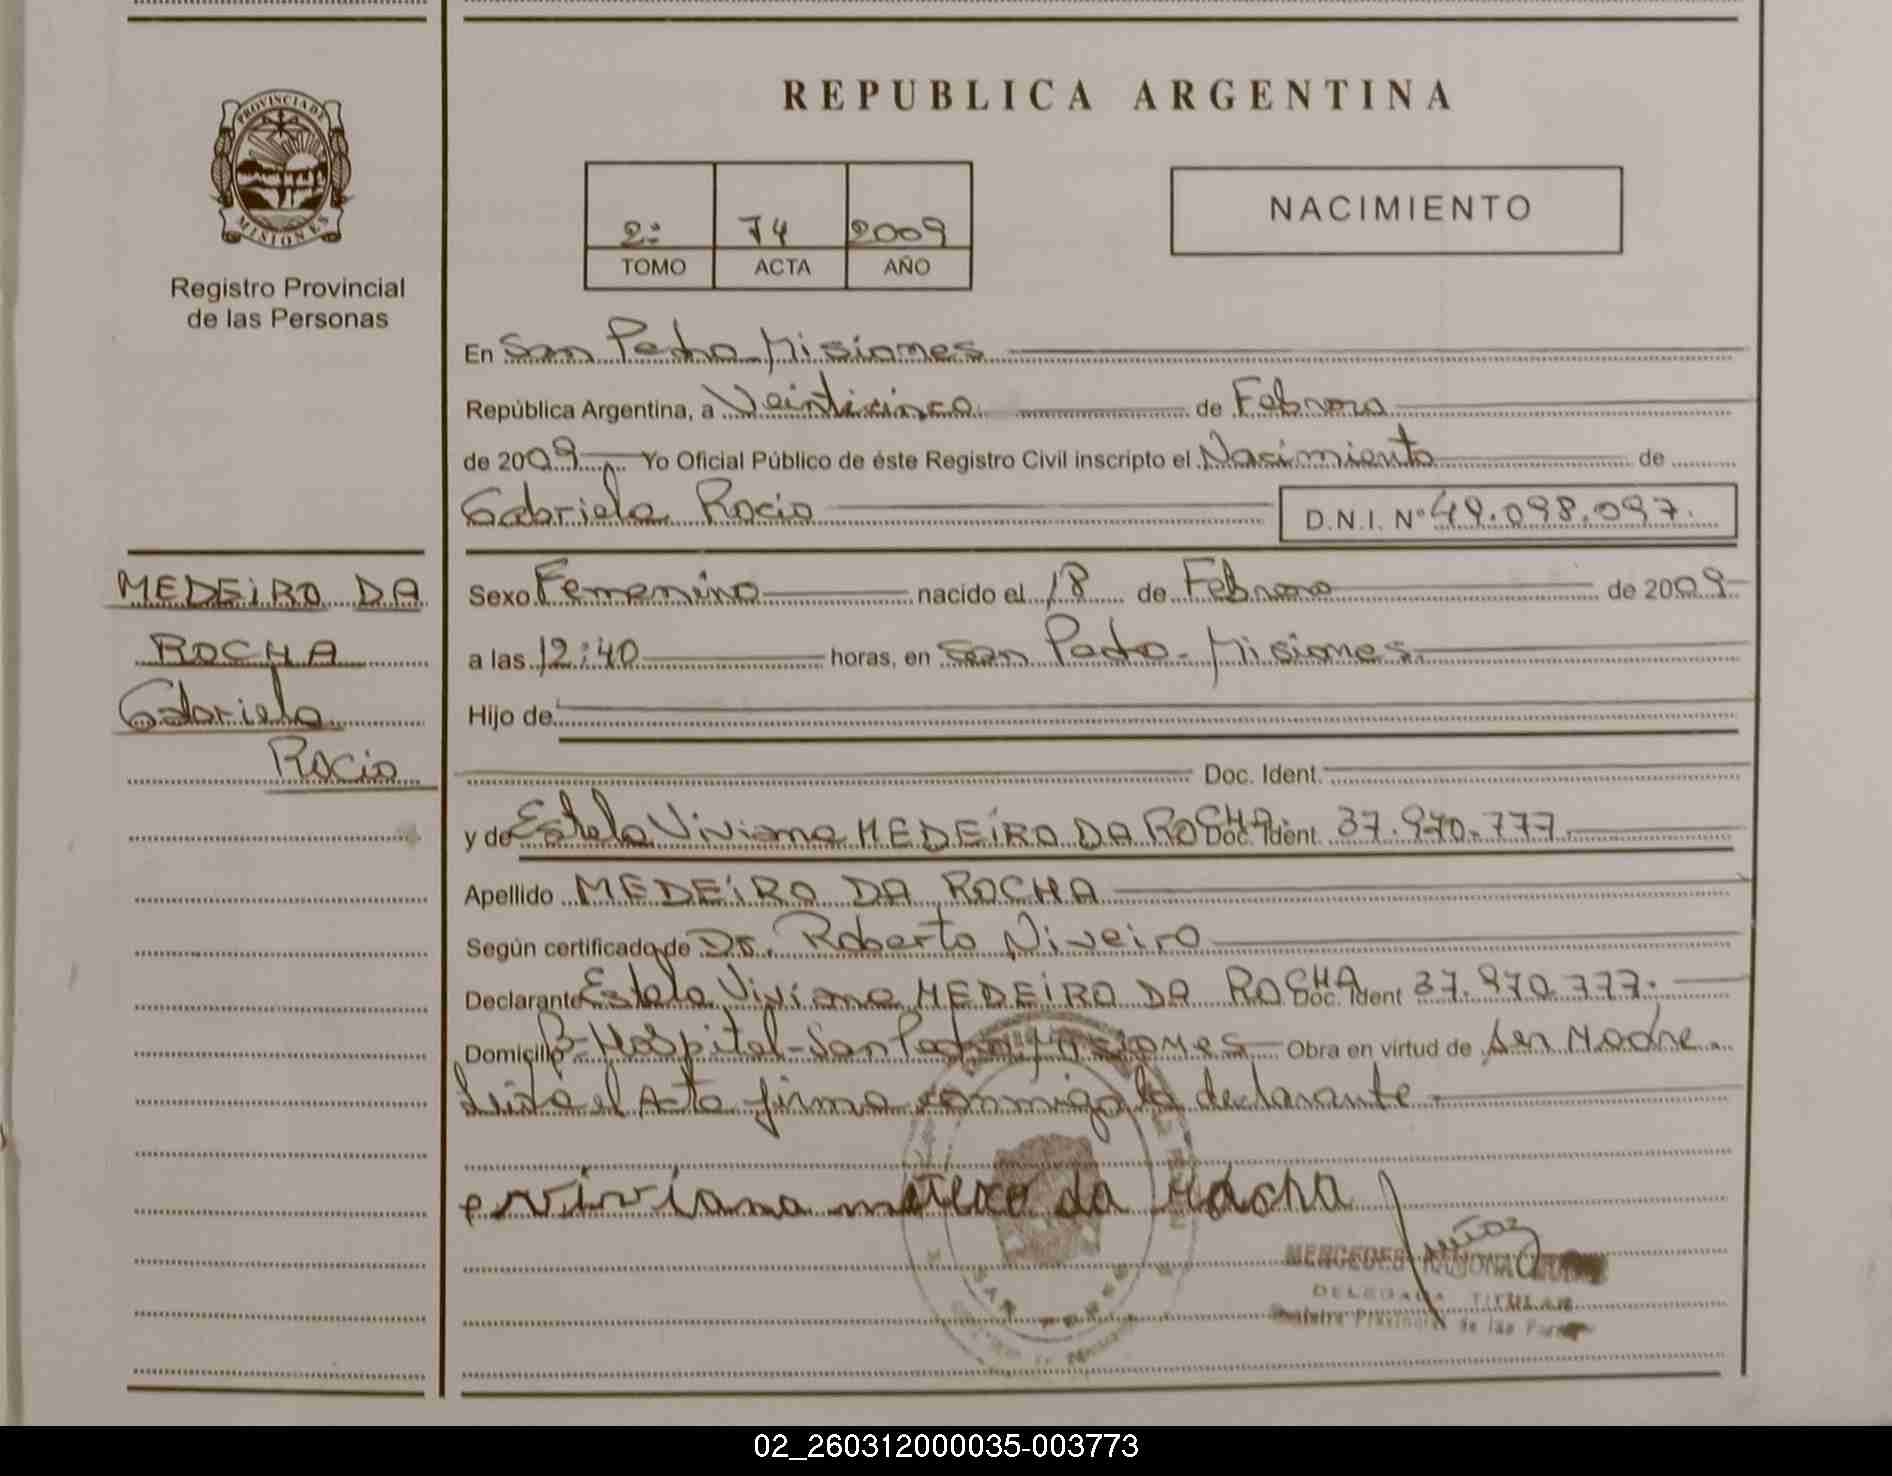 REPUBLICA ARGENTINA
PROVINCIA DE
MISIONES
Registro Provincial
de las Personas
2º 74 2009
TOMO ACTA AÑO
NACIMIENTO
En San Pedro Misiones
República Argentina, a Veinticinco de Febrero
de 2009 Yo Oficial Público de éste Registro Civil inscripto el Nacimiento de
Gabriela Rocio D.N.I. Nº 49.098.097.
MEDEIRO DA
ROCHA
Gabriela
Rocio
Sexo Femenino nacido el 18 de Febrero de 2009
a las 12:40 horas, en San Pedro - Misiones
Hijo de
Doc. Ident.
y de Estela Viviana MEDEIRO DA ROCHA Doc. Ident. 37.970.777.
Apellido MEDEIRO DA ROCHA
Según certificado de Dr. Roberto Niveiro
Declarante Estela Viviana MEDEIRO DA ROCHA Doc. Ident 37.970.777.
Domicilio Bº Hospital - San Pedro Misiones Obra en virtud de ser Madre.
Leida el Acta firma conmigo la declarante
viviana da Rocha
MERCEDES RAMONA
DELEGADA TITULAR
Registro Provincial de las
02_260312000035-003773